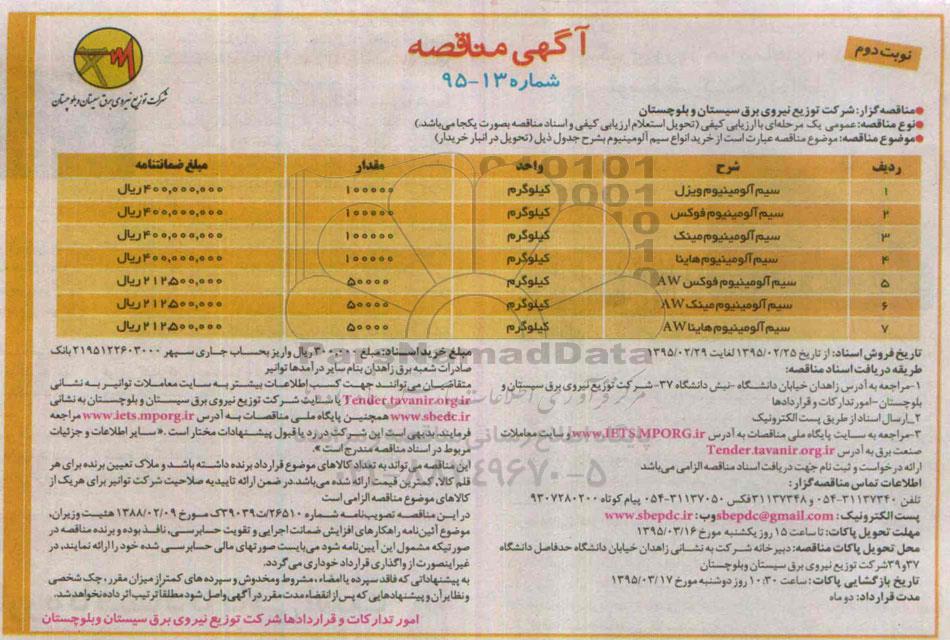 نوبت دوم
آگهی مناقصه
شماره ۱۳-۹۵
شرکت توزیع نیروی برق سیستان و بلوچستان
مناقصه گزار: شرکت توزیع نیروی برق سیستان و بلوچستان
نوع مناقصه: عمومی یک مرحله‌ای با ارزیابی کیفی (تحویل استعلام ارزیابی کیفی و اسناد مناقصه بصورت یکجا می‌باشد.)
موضوع مناقصه: موضوع مناقصه عبارت است از خرید انواع سیم آلومینیوم بشرح جدول ذیل (تحویل در انبار خریدار)
ردیف شرح واحد مقدار مبلغ ضمانتنامه
۱ سیم آلومینیوم ویزل کیلوگرم ۱۰۰۰۰۰ ۴۰۰,۰۰۰,۰۰۰ ریال
۲ سیم آلومینیوم فوکس کیلوگرم ۱۰۰۰۰۰ ۴۰۰,۰۰۰,۰۰۰ ریال
۳ سیم آلومینیوم مینک کیلوگرم ۱۰۰۰۰۰ ۴۰۰,۰۰۰,۰۰۰ ریال
۴ سیم آلومینیوم هاینا کیلوگرم ۱۰۰۰۰۰ ۴۰۰,۰۰۰,۰۰۰ ریال
۵ سیم آلومینیوم فوکس AW کیلوگرم ۵۰۰۰۰ ۲۱۲,۵۰۰,۰۰۰ ریال
۶ سیم آلومینیوم مینک AW کیلوگرم ۵۰۰۰۰ ۲۱۲,۵۰۰,۰۰۰ ریال
۷ سیم آلومینیوم هاینا AW کیلوگرم ۵۰۰۰۰ ۲۱۲,۵۰۰,۰۰۰ ریال
تاریخ فروش اسناد: از تاریخ ۱۳۹۵/۰۲/۲۵ لغایت ۱۳۹۵/۰۲/۲۹
طریقه دریافت اسناد مناقصه:
۱-مراجعه به آدرس زاهدان خیابان دانشگاه -نبش دانشگاه ۳۷- شرکت توزیع نیروی برق سیستان و
بلوچستان -امور تدارکات و قراردادها
۲_ارسال اسناد از طریق پست الکترونیک
۳-مراجعه به سایت پایگاه ملی مناقصات به آدرس www.IETS.MPORG.ir و سایت معاملات
صنعت برق به آدرس Tender.tavanir.org.ir
ارائه درخواست و ثبت نام جهت دریافت اسناد مناقصه الزامی می‌باشد
اطلاعات تماس مناقصه گزار:
تلفن ۳۱۱۳۷۳۴۰-۰۵۴ و ۳۱۱۳۷۳۴۸ فکس ۳۱۱۳۷۰۵۰-۰۵۴ پیام کوتاه ۹۳۰۷۲۸۰۲۰۰
پست الکترونیک: sbepdc@gmail.com وب: www.sbepdc.ir
مهلت تحویل پاکات: تا ساعت ۱۵ روز یکشنبه مورخ ۱۳۹۵/۰۳/۱۶
محل تحویل پاکات مناقصه: دبیرخانه شرکت به نشانی زاهدان خیابان دانشگاه حدفاصل دانشگاه
۳۷ و ۳۹ شرکت توزیع نیروی برق سیستان وبلوچستان
تاریخ بازگشایی پاکات: ساعت ۱۰:۳۰ روز دوشنبه مورخ ۱۳۹۵/۰۳/۱۷
مدت قرارداد: دو ماه
مبلغ خرید اسناد: مبلغ ۳۰۰,۰۰۰ ریال واریز بحساب جاری سپهر ۲۱۹۵۱۲۲۶۰۳۰۰۰ بانک
صادرات شعبه برق زاهدان بنام سایر درآمدها توانیر
متقاضیان می‌توانند جهت کسب اطلاعات بیشتر به سایت معاملات توانیر به نشانی
Tender.tavanir.org.ir یا سایت شرکت توزیع نیروی برق سیستان و بلوچستان به نشانی
www.sbedc.ir همچنین پایگاه ملی مناقصات به آدرس www.iets.mporg.ir مراجعه
فرمایند. بدیهی است این شرکت در رد یا قبول پیشنهادات مختار است. «سایر اطلاعات و جزئیات
مربوط در اسناد مناقصه مندرج است»
این مناقصه می‌تواند به تعداد کالاهای موضوع قرارداد برنده داشته باشد و ملاک تعیین برنده برای هر
قلم کالا، کمترین قیمت ارائه شده می‌باشد. در ضمن ارائه تاییدیه صلاحیت شرکت توانیر برای هریک از
کالاهای موضوع مناقصه الزامی است
در این مناقصه تصویب‌نامه شماره ۲۶۵۱۰/ت۳۹۰۳۹ک مورخ ۱۳۸۸/۰۲/۰۹ هئیت وزیران،
موضوع آئین‌نامه راهکارهای افزایش ضمانت اجرایی و تقویت حسابرسی، نافذ بوده و برنده مناقصه در
صورتیکه مشمول این آیین‌نامه شود می‌بایست صورتهای مالی حسابرسی شده خود را ارائه نمایند، در
غیر اینصورت از واگذاری قرارداد خودداری می‌گردد.
به پیشنهاداتی که فاقد سپرده یا امضاء، مشروط و مخدوش و سپرده‌های کمتر از میزان مقرر، چک شخصی
و نظایر آن و پیشنهادهایی که پس از انقضاء مدت مقرر در آگهی واصل شود مطلقا ترتیب اثر داده نخواهد شد.
امور تدارکات و قراردادها شرکت توزیع نیروی برق سیستان وبلوچستان
ParsNamadData